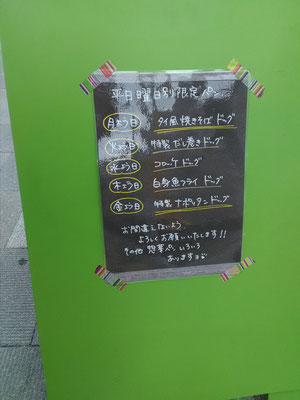 平日曜日別限定パン
月よう日 タイ風焼きそばドッグ
火よう日 特製だし巻きドッグ
水よう日 コロッケドッグ
木よう日 白身魚フライドッグ
金よう日 特製ナポリタンドッグ
お間違えないよう
よろしくお願いいたします!!
その他 惣菜パン いろいろ
あります